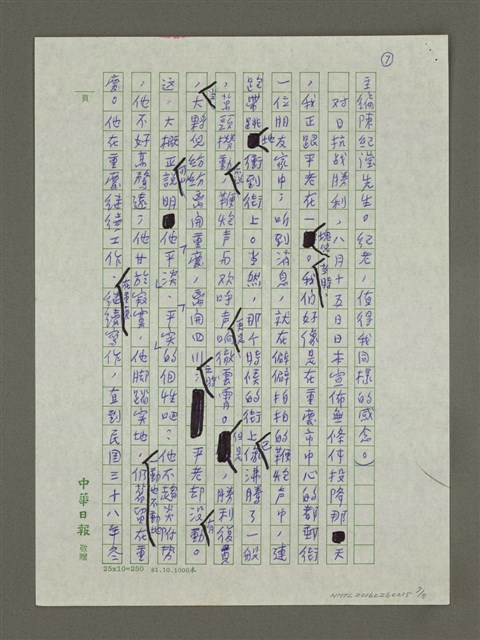 ⑦
主編陳紀瀅先生。紀老,值得我同樣的感念。)
對日抗战勝利,八月十五日日本宣佈無條件投降那天
,我正跟平老在一塊兒。當時我們好像是在重慶市中心的都郵街
一位朋友家中,听到消息,就在僻僻拍拍的鞭炮声中,連
跑帶跳地衝到街上。当然,那个時候的街上已像沸騰了一般
,萬頭攢動,鞭炮声与欢呼声响徹雲霄。但是,勝利復員
,大夥兒紛紛离開重慶,离開四川,平老却沒有動。
这,大概正說明他「平淡」、「平实」的個性吧?他不趨炎附勢
,他不好高騖遠;他甘於寂寞,他脚踏实地,一動也不動地仍舊留在重
慶。他在重慶繼續工作,繼續寫作,直到民国三十八年冬
頁
中華日報 敬贈
25x10=250 81.10.1000本
NMTL20160260015 7/8